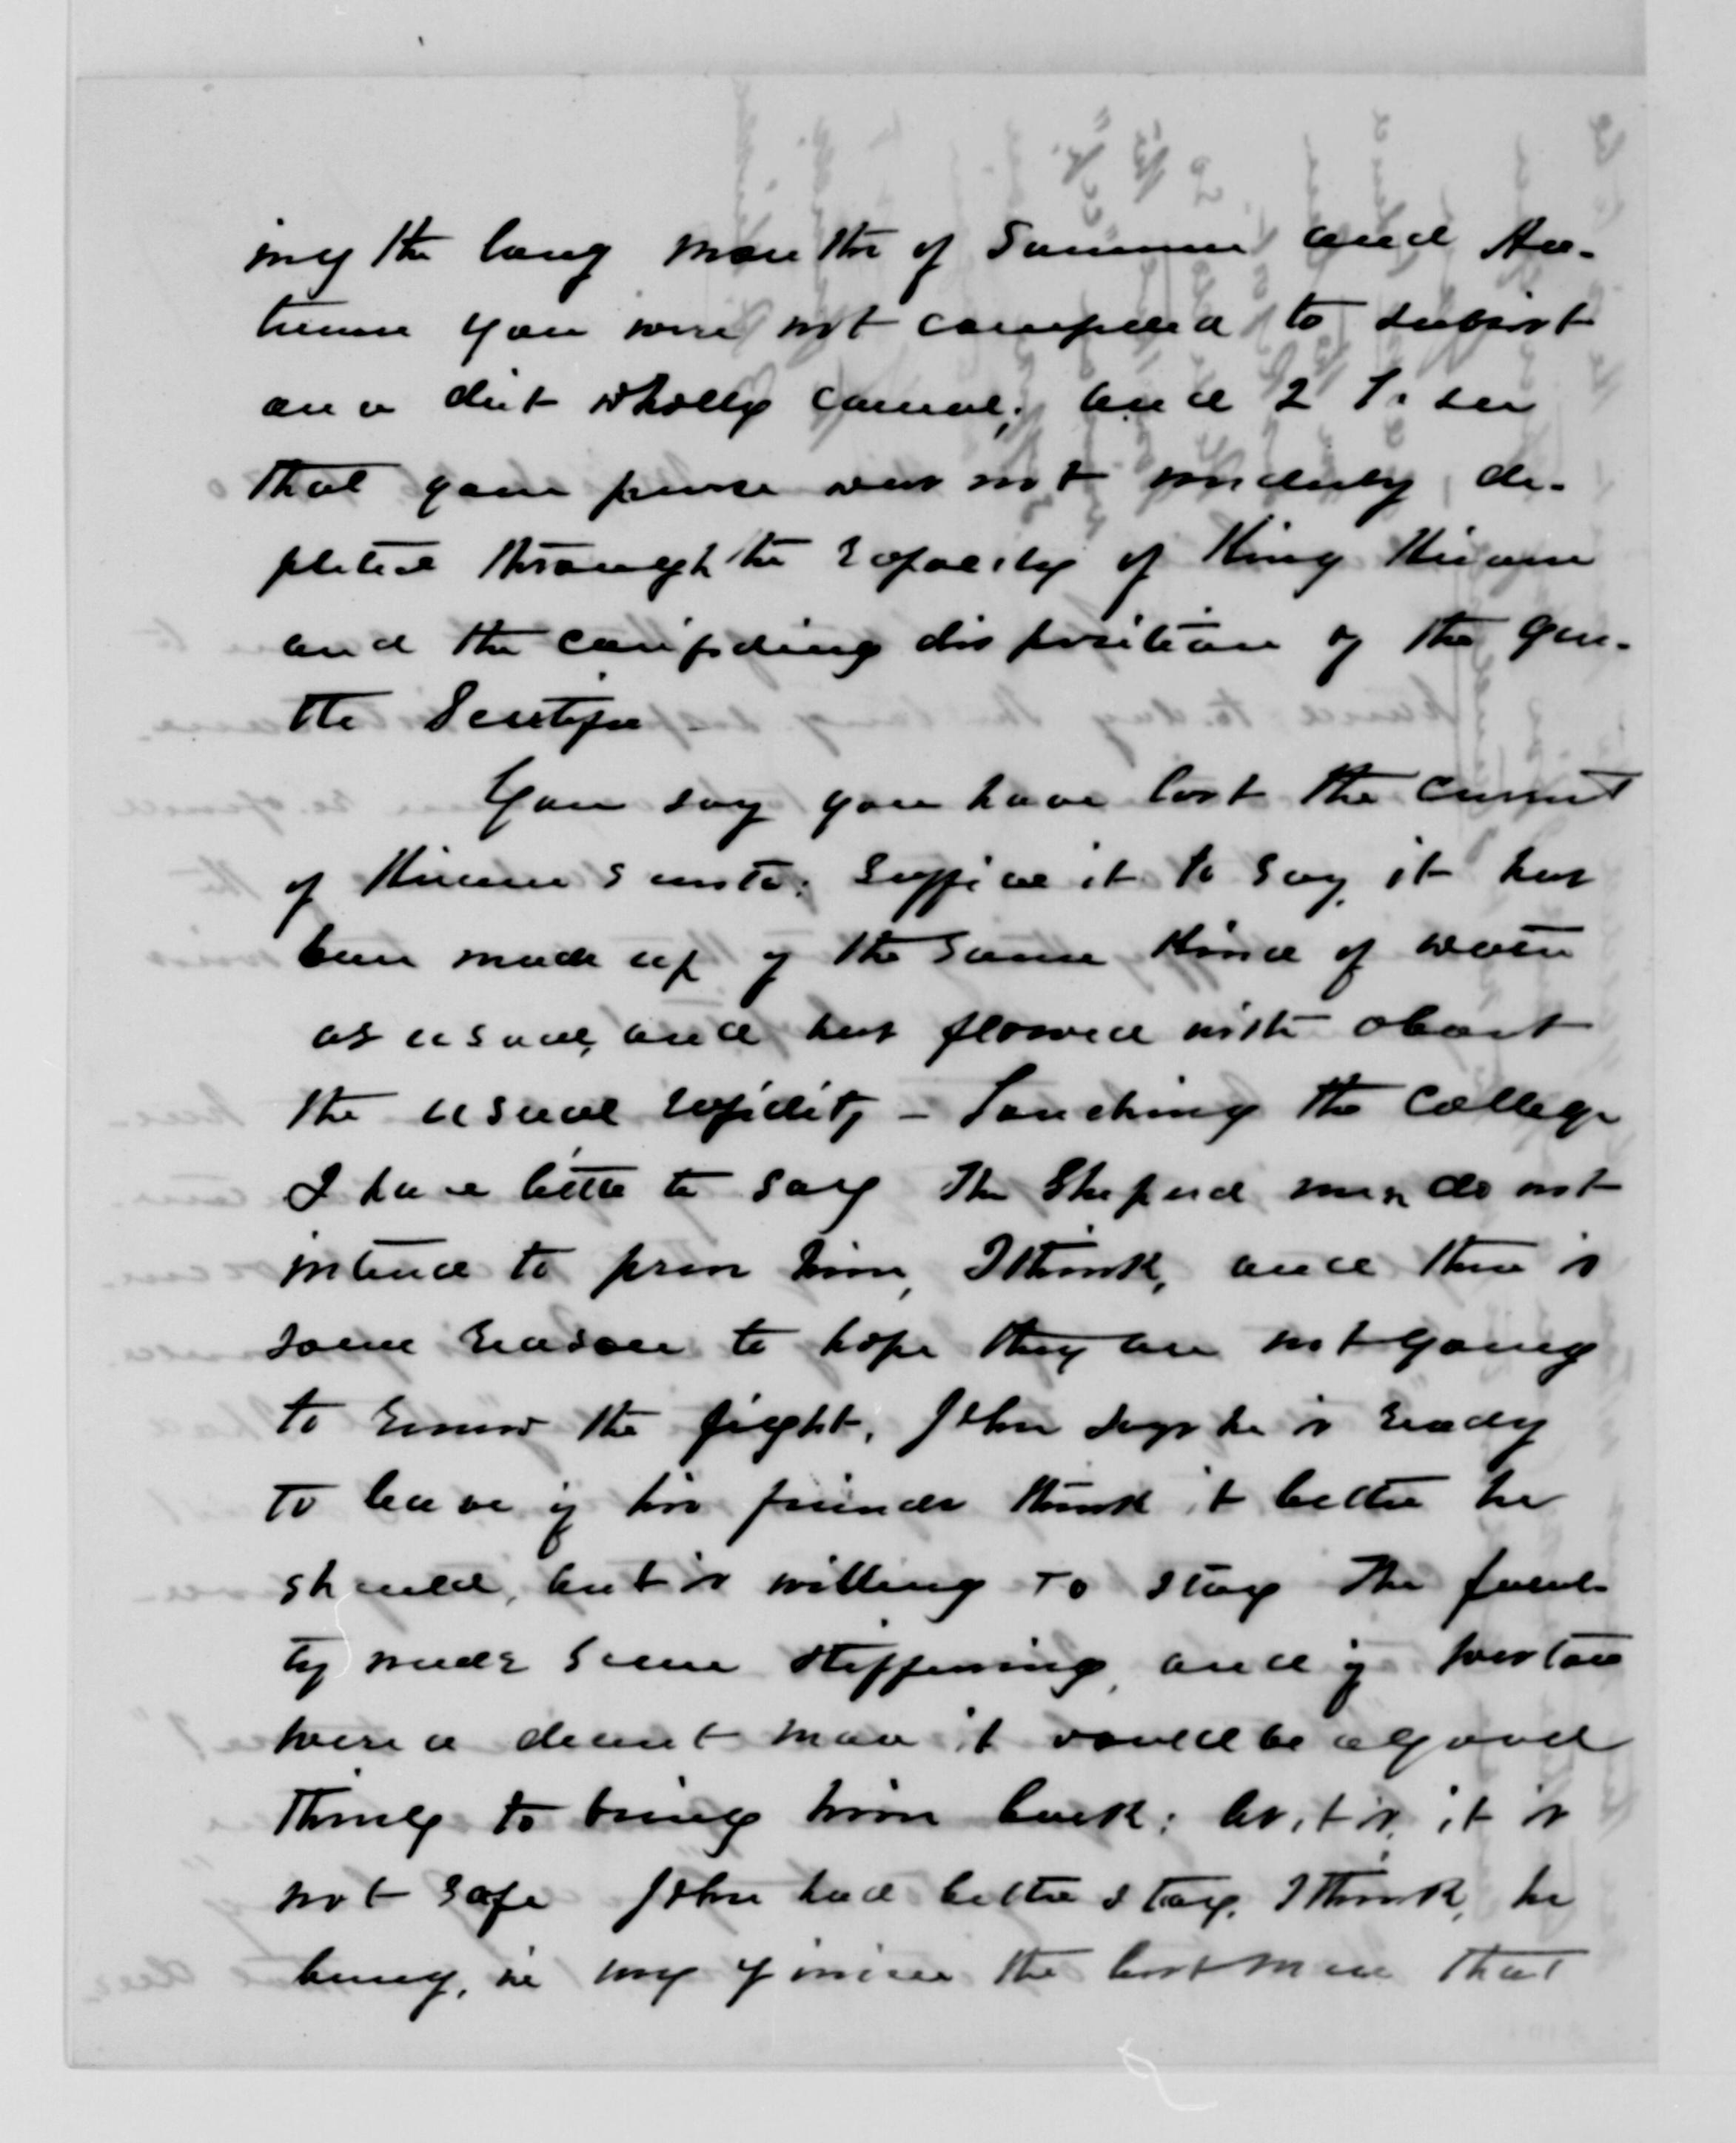 ing the long months of Summer and Au-
tumn you were not compelled to subsist
on a diet wholly carnal; and 2 To see
that your purse was not unduly de-
pleted through the rapacity of King Hiram
and the confiding disposition of the gen-
tle
You say you have lost the current
of Hiram events: Suffice it to say, it has
been made up of the same kind of water
as usual, and has flowed with about
the usual rapidity – Touching the College
I have little to say The Sheperd men do not
intend to press him, I think, and there is
some reason to hope they are not going
to renew the fight. John says he is ready
to leave if his friends think it better he
should, but is willing to stay The facul-
ty needs some stiffening, and if
were a decent man it would be a good
thing to bring him back: as it is, it is
not safe John had better stay, I think, he
being, in my opinion the best man that